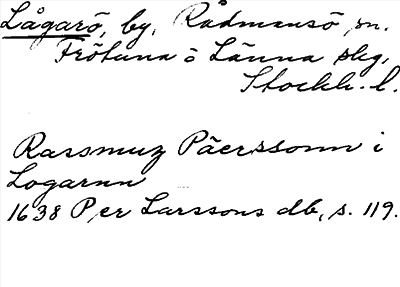 Lågarö, by, Rådmansö sn.
Frötuna o Länna skg,
Stockh. l.
Rassmuz Päerssonn i
Logarnn
1638 Per Larssons db, s. 119.